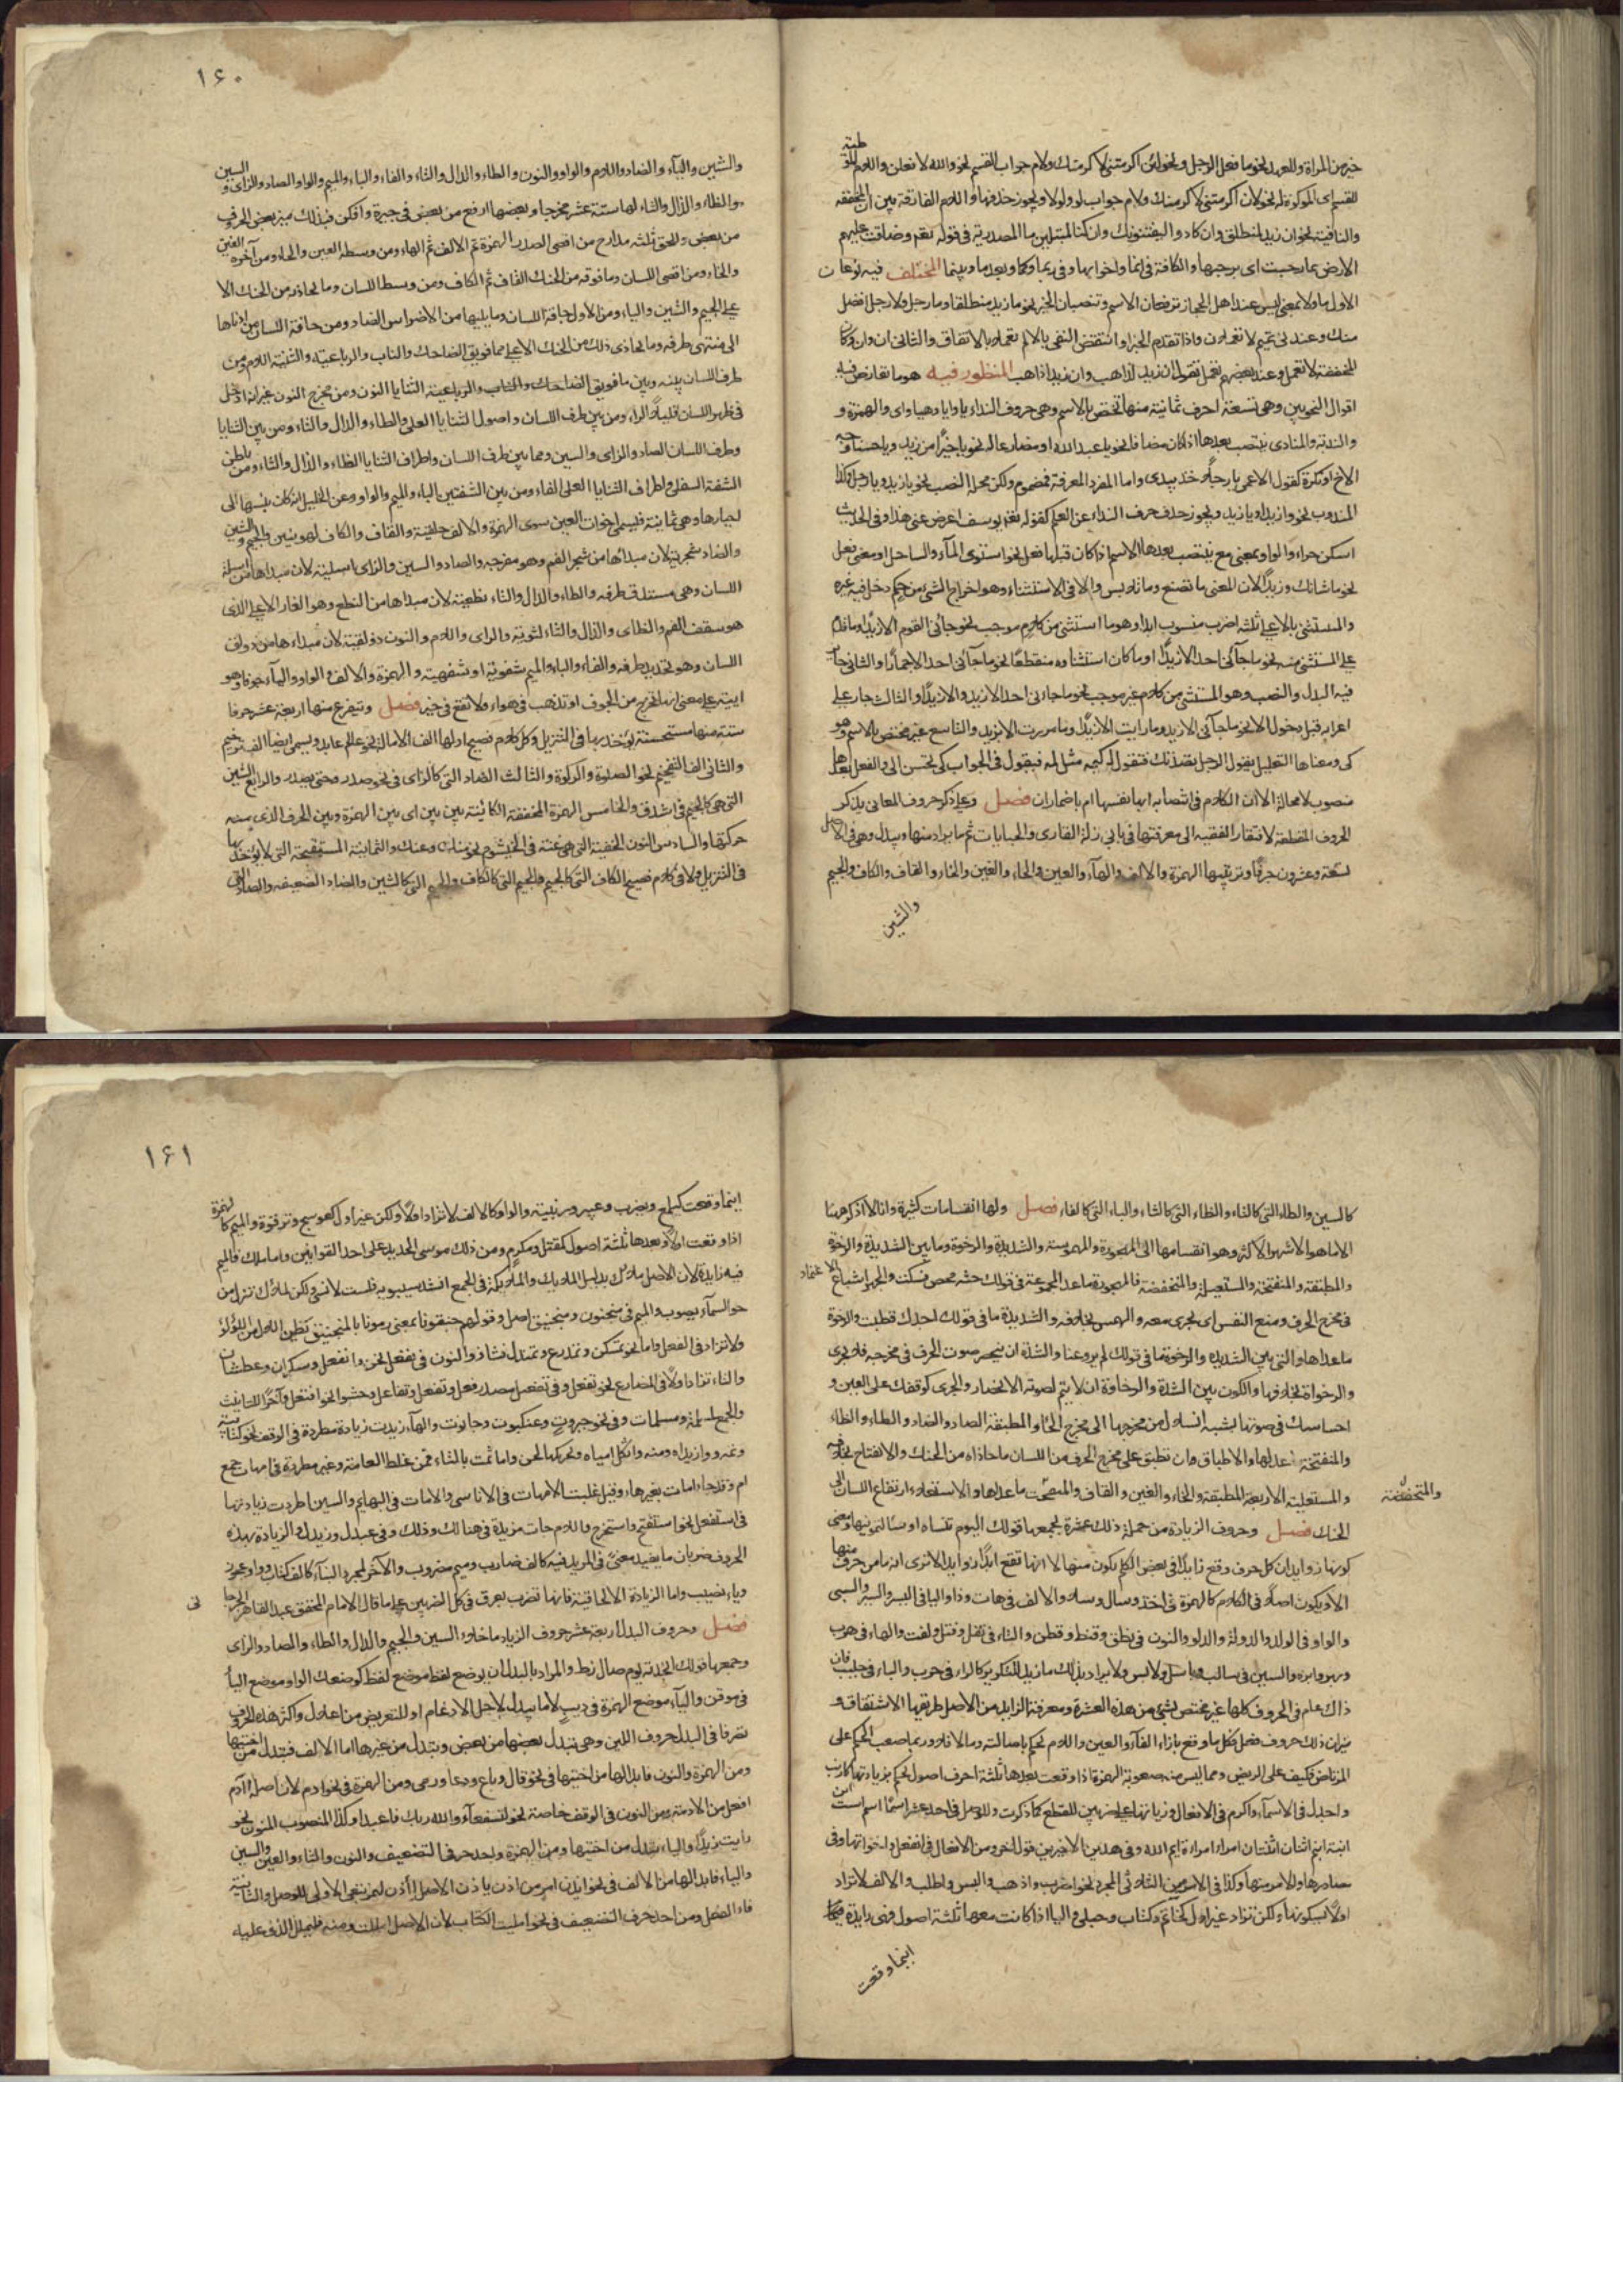 خير من المراة والعهد نحو ما فعل الرجل ونحو لئن اكرمتنى لاكرمتك ولام جواب القسم نحو والله لافعلن واللام الموطئة
للقسم اى الموكدة له نحو لان اكرمتنى لاكرمنك ولام جواب لو ولولا ويجوز حذفها واللام الفارقة بين ان المخففة
والنافية نحو ان زيد لمنطلق وان كادوا ليفتنونك وان كنا لمبتلين ما المصدرية فى قوله تعم وضاقت عليهم
الارض بما رحبت اى برحبها والكافة فى انما واخواتها وفى ربما وكما وبعد ما وبينما المختلف فيه نوعان
الاول ما ولا بمعنى ليس عند اهل الحجاز ترفعان الاسم وتنصبان الخبر نحو ما زيد منطلقا وما رجل ولا رجل افضل
منك وعند بنى تميم لا تعملان واذا تقدم الخبر او انتقض النفى بالا لم تعملا بالاتفاق والثانى ان وان وكان
المخففة لا تعمل وعند بعضهم تعمل تقول ان زيد لذاهب وان زيدا ذاهب المنظور فيه هو ما تعارض فيه
اقوال النحويين وهى تسعة احرف ثمانية منها تختص بالاسم وهى حروف النداء يا وايا وهيا واى والهمزة و
والندبة والمنادى ينتصب بعدها اذا كان مضافا نحو يا عبد الله او مضارعا له نحو يا خيرًا من زيد ويا حسنا وجه
الاخ او نكرة كقول الاعمى يا رجلًا خذ بيدى واما المفرد المعرفة فمضموم ولكن محله النصب نحو يا زيد ويا رجل وكذا
المندوب نحو وا زيداه ويا زيد ويجوز حذف حرف النداء عن العلم كقوله تعم يوسف اعرض عن هذا وفى الحديث
اسكن حراء والواو بمعنى مع ينتصب بعدها الاسم اذا كان قبلها فعل نحو استوى المآء والساحل او معنى فعل
نحو ما شانك وزيدًا لان المعنى ما تصنع وما تلابس والا فى الاستثناء وهو اخراج الشئ من حكم دخل فيه غيره
والمستثنى بالا على ثلثة اضرب منصوب ابدا وهو ما استثنى من كلام موجب نحو جائنى القوم الا زيدًا وما قدم
على المستثنى منه نحو ما جآئنى الا زيدًا احد او ما كان استثناوه منقطعًا نحو ما جآئنى احد الا حمارًا والثانى جائز
فيه البدل والنصب وهو المستثنى من كلام غير موجب نحو ما جاءنى احد الا زيد والا زيدًا والثالث جار على
اعرابه قبل دخول الا نحو ما جآئنى الا زيد وما رايت الا زيدًا وما مررت الا بزيد والتاسع غير مختص بالاسم وهو
كى ومعناها التعليل يقول الرجل قصدتك فتقول له كيمه مثل لمه فيقول فى الجواب كى تحسن الى والفعل بعدها
منصوب لا محالة الا ان الكلام فى انتصابه ابها نفسها ام باضمار ان فصل وعلى ذكر حروف المعانى يذكر
الحروف المقطعة لافتقار الفقيه الى معرفتها فى بابى زلة القارى والجنايات ثم ما يزاد منها ويبدل وهى فى الاصل
تسعة وعشرون حرفًا وترتيبها الهمزة والالف والهآء والعين والحاء والغين والخاء والقاف والكاف والجيم
والشين
١٦٠
والشين والياء والضاد واللام والراء والنون والطاء والدال والتاء والفاء والباء والميم والواو والصاد والزاى و السين
والظاء والذال والثاء لها ستة عشر مخرجا وبعضها ارفع من بعض فى حيزه وامكن فبذلك يميز بعض الحروف
من بعض وللحلق ثلثه مدارج من اقصى الصدر الهمزة ثم الالف ثم الهاء ومن وسطه العين والحاء ومن آخره الغين
والخاء ومن اقصى اللسان وما فوقه من الحنك القاف ثم الكاف ومن وسط اللسان وما يحاذيه من الحنك الا
على الجيم والشين والياء ومن الاول حافة اللسان وما يليها من الاضراس الضاد ومن حافة اللسان من ادناها
الى منتهى طرفه وما يحاذى ذلك من الحنك الاعلى مما فويق الضاحك والناب والرباعية والثنية اللام ومن
طرف اللسان بينه وبين ما فويق الضاحك والناب والرباعية الثنايا النون ومن مخرج النون غير انه ادخل
فى ظهر اللسان قليلًا الراء ومن بين طرف اللسان واصول الثنايا العلى والطاء والدال والتاء ومن بين الثنايا
وطرف اللسان الصاد والزاى والسين ومما بين طرف اللسان واطراف الثنايا الظاء والذال والثاء ومن باطن
الشفة السفلى واطراف الثنايا العلى الفاء ومن بين الشفتين الباء والميم والواو وعن الخليل انه كان ينسبها الى
احيازها وهى ثمانية فليسمى اخوات العين سوى الهمزة والالف حلقية والقاف والكاف لهويتين والجيم والشين
والضاد شجرية لان مبداها من شجر الفم وهو مفرجه والصاد والسين والزاى اسلية لان مبداها من اسلة
اللسان وهى مستدق طرفه والطاء والدال والتاء نطعية لان مبداها من النطع وهو الغار الاعلى الذى
هو سقف الفم والظاى والذال والثاء لثوية والراى واللام والنون ذولقية لان مبداءها من ذولق
اللسان وهو تحديد طرفه والفاء والباء والميم شفوية او شفهية والهمزة والالف والواو واليآء جوفا وهو
ايية على معنى انها تخرج من الجوف او تذهب فى هواء ولا تقع فى حيز فصل وتتفرع منها اربعة عشر حرفا
ستة منها مستحسنة يوخذ بها فى التنزيل وكل كلام فصيح اولها الف الامالة نحو عالم عابد ويسمى ايضا الف ترخيم
والثانى الف التفخيم نحو الصلوة والزكوة والثالث الصاد التى كالزاى فى نحو صدر وحتى يصدر والرابع الشين
التى هى كالجيم فى اشدق والخامس الهمزة المخففة الكائنة بين بين اى بين الهمزة وبين الحرف الذى منه
حركتها والسادس النون الخفية التى هى غنة فى الخيشوم نحو منك وعنك والثمانية المستقبحة التى لا يؤخذ بها
فى التنزيل ولا فى كلام فصيح الكاف التى كالجيم والجيم التى كالكاف والجيم التى كالشين والضاد الضعيفه والصاد التى
كالسين والطاء التى كالتاء والظاء التى كالثاء والباء التى كالفاء فصل ولها انقسامات كثيرة وانا لا اذكر هنا
الا ما هو الاشهر والاكثر وهو انقسامها الى المجهورة والمهموسة والشديدة والرخوة وما بين الشديدة والرخوة
والمطبقة والمنفتحة والمستعلية والمنخفضة فالمجهورة ما عدا المجموعة فى قولك حثه شخص فسكت والجهر اشباع الاعتماد
فى مخرج الحرف ومنع النفس اى يجرى معه والهمس بخلافه والشديدة ما فى قولك اجدك قطبت والرخوة
ما عداها والتى بين الشديدة والرخوة ما فى قولك لم يروعنا والشدة ان ينحصر صوت الحرف فى مخرجه فلا يجرى
والرخاوة بخلافها والكون بين الشدة والرخاوة ان لا يتم لصوته الانحصار والجرى كوقفك على العين و
احساسك فى صوتها بشبه انسلال من مخرجها الى مخرج الحاء والمطبقة الصاد والضاد والطاء والظاء
والمنفتحة ما عداها والاطباق ان تطبق على مخرج الحرف من اللسان ما حاذاه من الحنك والانفتاح بخلافه
والمستعلية الاربعة المطبقة والخاء والغين والقاف والمنخفضة ما عداها والاستعلاء ارتفاع اللسان الى
والمنخفضة
الحنك فصل وحروف الزيادة من جملة ذلك عشرة يجمعها قولك اليوم تنساه او سالتمونيها ومعنى
كونها زوايد ان كل حرف وقع زايدًا فى بعض الكلم يكون منها لا انها تقع ابدًا زوايد الا ترى انه ما من حرف منها
الا ويكون اصلًا فى الكلام كالهمزة فى اخذ وسال وسلا والالف فى هات وذا واليا فى اليسر والسير والسبى
والواو فى الولد والدولة والدلو والنون فى نطق وقنط وقطن والتاء فى تفل وفتل ولفت والهاء فى هرب
وربهو ابره والسين فى سالب وباسل ولابس ولا يراد بذلك ما زيد للتكرير كالراء فى جرب والباء فى جلبب فان
ذلك عام فى الحروف كلها غير مختص بشئ من هذه العشرة ومعرفة الزايد من الاصل طريقها الاشتقاق و
ميزان ذلك حروف فعل فكل ما وقع بازاء الفآء والعين واللام يحكم باصالته وما لا فلا وربما صعب الحكم على
المرتاض فكيف على الريض ومما ليس منه صعوبة الهمزة اذا وقعت بعدها ثلثة احرف اصول يحكم بزيادتها كارنب
واجدل فى الاسمآء واكرم فى الافعال وزيادتها على ضربين للقطع كما ذكرت وللوصل فى احد عشر اسمًا اسم است ابن
ابنة ابنم اثنان اثنتان امرا امراة ايم الله وفى هذين الاخيرين قول اخر ومن الافعال فى انفعل واخواتها وفى
مصادرها والامر منها وكذا فى الامر من الثلاثى المجرد نحو اضرب واذهب والبس واطلب والالف لا تزاد
اولًا لسكونها ولكن تزاد غير اول كخاتم وكتاب وحبلى واليا اذا كانت معها ثلثة اصول فهى زايدة
اينما وقعت
١٦١
اينما وقعت كيلمع ويضرب وعيهر وزبنية والواو كالالف لا تزاد اولًا ولكن غير اول كعوسج وترقوة والميم كالهمزة
اذا وقعت اولًا وبعدها ثلثة اصول كمقتل ومكرم ومن ذلك موسى الحديد على احد القولين واما ملك فالميم
فيه زايدة لان الاصل ملاك بدليل الملايك والملايكة فى الجمع انشد سيبويه فلست لانسى ولكن لملاك تنزل من
جو السمآء يصوب والميم فى منجنون ومنجنيق اصل وقولهم جنقونا بمعنى رمونا بالمنجنيق نظير اللال من اللؤلؤ
ولا تزاد فى الفعل واما نحو تمسكن وتمدرع وتمندل فشاذ والنون فى نفعل نحن وانفعل وسكران وعطشان
والتاء تزاد اولًا فى المضارع نحو تفعل وفى تفعيل مصدر فعل وتفعل وتفاعل وحشوا نحو افتعل وآخرًا للتانيث
والجمع كمسلمة ومسلمات وفى نحو جبروت وعنكبوت وجالوت والهآء زيدت زيادة مطردة فى الوقف نحو كتابية
وثمه ووازيداه ومنه واثكل امياه وتحريكها لحن واما ثمت بالتاء فمن غلط العامة وغير مطردة فى امهات جمع
ام وقد جاء امات بغيرهاء وقيل غلبت الامهات فى الاناسى والامات فى البهايم والسين اطردت زيادتها
فى استفعل نحو استفتح واستخرج واللام جات مزيدة فى هنالك وذلك وفى عبدل وزيدل والزيادة بهذه
الحروف ضربان ما يفيد معنى فى المزيد فيه كالف ضارب وميم مضروب والآخر لمجرد البنآء كالف كتاب وواو عجوز
وياء نصيب واما الزيادة الالحاقية فانها تضرب بعرق فى كل الضربين على ما قال الامام المحقق عبد القاهر الجرجانى
فصل وحروف البدل اربعة عشر حروف الزياد ما خلا السين والجيم والدال والطاء والصاد والزاى
وجمعها قولك انجدته يوم صال زط والمراد بالبدل ان يوضع لفظ موضع لفظ كوضعك الواو موضع اليآ
فى موقن واليآء موضع الهمزة فى ذيب لا ما يبدل لاجل الادغام او للتعويض من اعلال واكثر هذه الحروف
تصرفا فى البدل حروف اللين وهى تبدل بعضها من بعض وتبدل من غيرها اما الالف فتبدل من اختيها
ومن الهمزة والنون فابدالها من اختيها فى نحو قال وباع ودعا ورمى ومن الهمزة فى نحو ادم لان اصله اادم
افعل من الادمة ومن النون فى الوقف خاصة نحو لنسفعاً والله ربك فاعبدا وكذا المنصوب المنون نحو
رايت زيدًا والياء تبدل من اختيها ومن الهمزة واحد حرفى التضعيف والنون والتاء والعين والسين
والياء فابدالها من الالف فى نحو ايذن امر من اذن ياذن الاصل اأذن لهمزتين الاولى للوصل والثانية
فاء الفعل ومن احد حرفى التضعيف فى نحو امليت الكتاب لان الاصل امللت ومنه فليملل الذى عليه